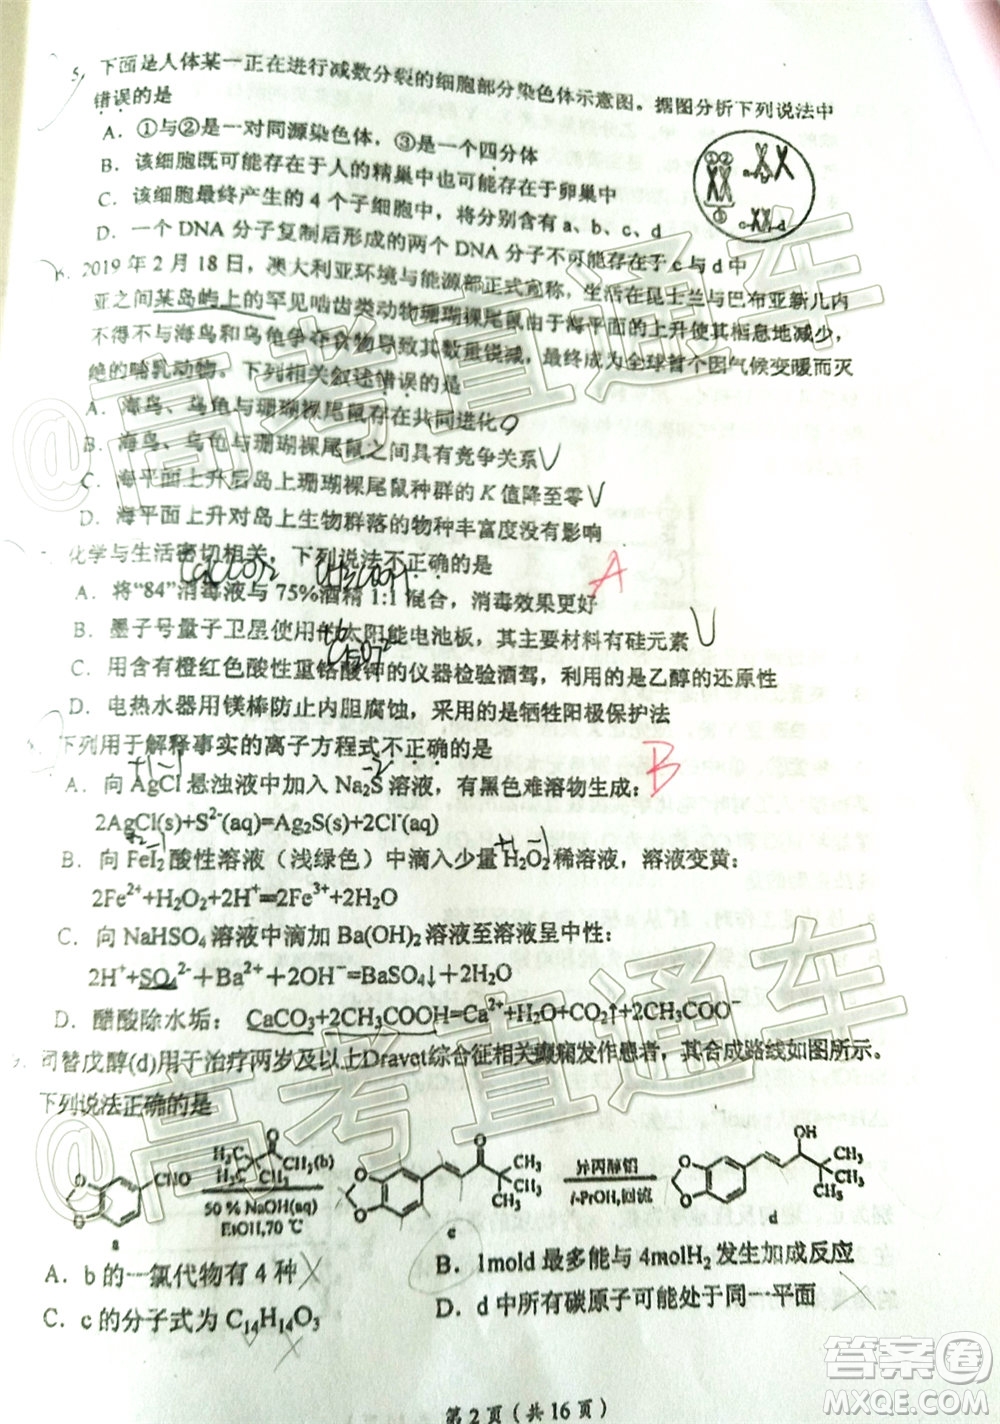 5. 下面是人体某一正在进行减数分裂的细胞部分染色体示意图。据图分析下列说法中
错误的是
A．①与②是一对同源染色体，③是一个四分体
B．该细胞既可能存在于人的精巢中也可能存在于卵巢中
C．该细胞最终产生的 4 个子细胞中，将分别含有 a、b、c、d
D．一个 DNA 分子复制后形成的两个 DNA 分子不可能存在于 c 与 d 中
①②
a b
c d
6. 2019 年 2 月 18 日，澳大利亚环境与能源部正式宣称，生活在昆士兰与巴布亚新几内
亚之间某岛屿上的罕见啮齿类动物珊瑚裸尾鼠由于海平面的上升使其栖息地减少，
不得不与海鸟和乌龟争夺食物导致其数量锐减，最终成为全球首个因气候变暖而灭
绝的哺乳动物。下列相关叙述错误的是
A．海鸟、乌龟与珊瑚裸尾鼠存在共同进化
B．海鸟、乌龟与珊瑚裸尾鼠之间具有竞争关系
C．海平面上升后岛上珊瑚裸尾鼠种群的 K 值降至零
D．海平面上升对岛上生物群落的物种丰富度没有影响
化学与生活密切相关，下列说法不正确的是
Ca(ClO)2 CH3COOH
A
A．将“84”消毒液与 75%酒精 1:1 混合，消毒效果更好
B．墨子号量子卫星使用的太阳能电池板，其主要材料有硅元素
C．用含有橙红色酸性重铬酸钾的仪器检验酒驾，利用的是乙醇的还原性
D．电热水器用镁棒防止内胆腐蚀，采用的是牺牲阳极保护法
下列用于解释事实的离子方程式不正确的是
B
A．向 AgCl 悬浊液中加入 Na₂S 溶液，有黑色难溶物生成：
2AgCl(s)+S²⁻(aq)=Ag₂S(s)+2Cl⁻(aq)
B．向 FeI₂ 酸性溶液（浅绿色）中滴入少量 H₂O₂ 稀溶液，溶液变黄：
2Fe²⁺+H₂O₂+2H⁺=2Fe³⁺+2H₂O
C．向 NaHSO₄ 溶液中滴加 Ba(OH)₂ 溶液至溶液呈中性：
2H⁺+SO₄²⁻+Ba²⁺+2OH⁻=BaSO₄↓+2H₂O
D．醋酸除水垢：CaCO₃+2CH₃COOH=Ca²⁺+H₂O+CO₂↑+2CH₃COO⁻
司替戊醇(d)用于治疗两岁及以上Dravet综合征相关癫痫发作患者，其合成路线如图所示。
下列说法正确的是
CHO
CH₃
CH₃(b)
50 % NaOH(aq)
EtOH,70 ℃
a
O
CH₃
CH₃
CH₃
c
异丙醇铝
i-PrOH,回流
OH
CH₃
CH₃
CH₃
d
A．b 的一氯代物有 4 种
B．1mold 最多能与 4molH₂ 发生加成反应
C．c 的分子式为 C₁₄H₁₄O₃
D．d 中所有碳原子可能处于同一平面
第 2 页（共 16 页）
@高考直通车
@高考直通车
答案圈
MXQE.COM